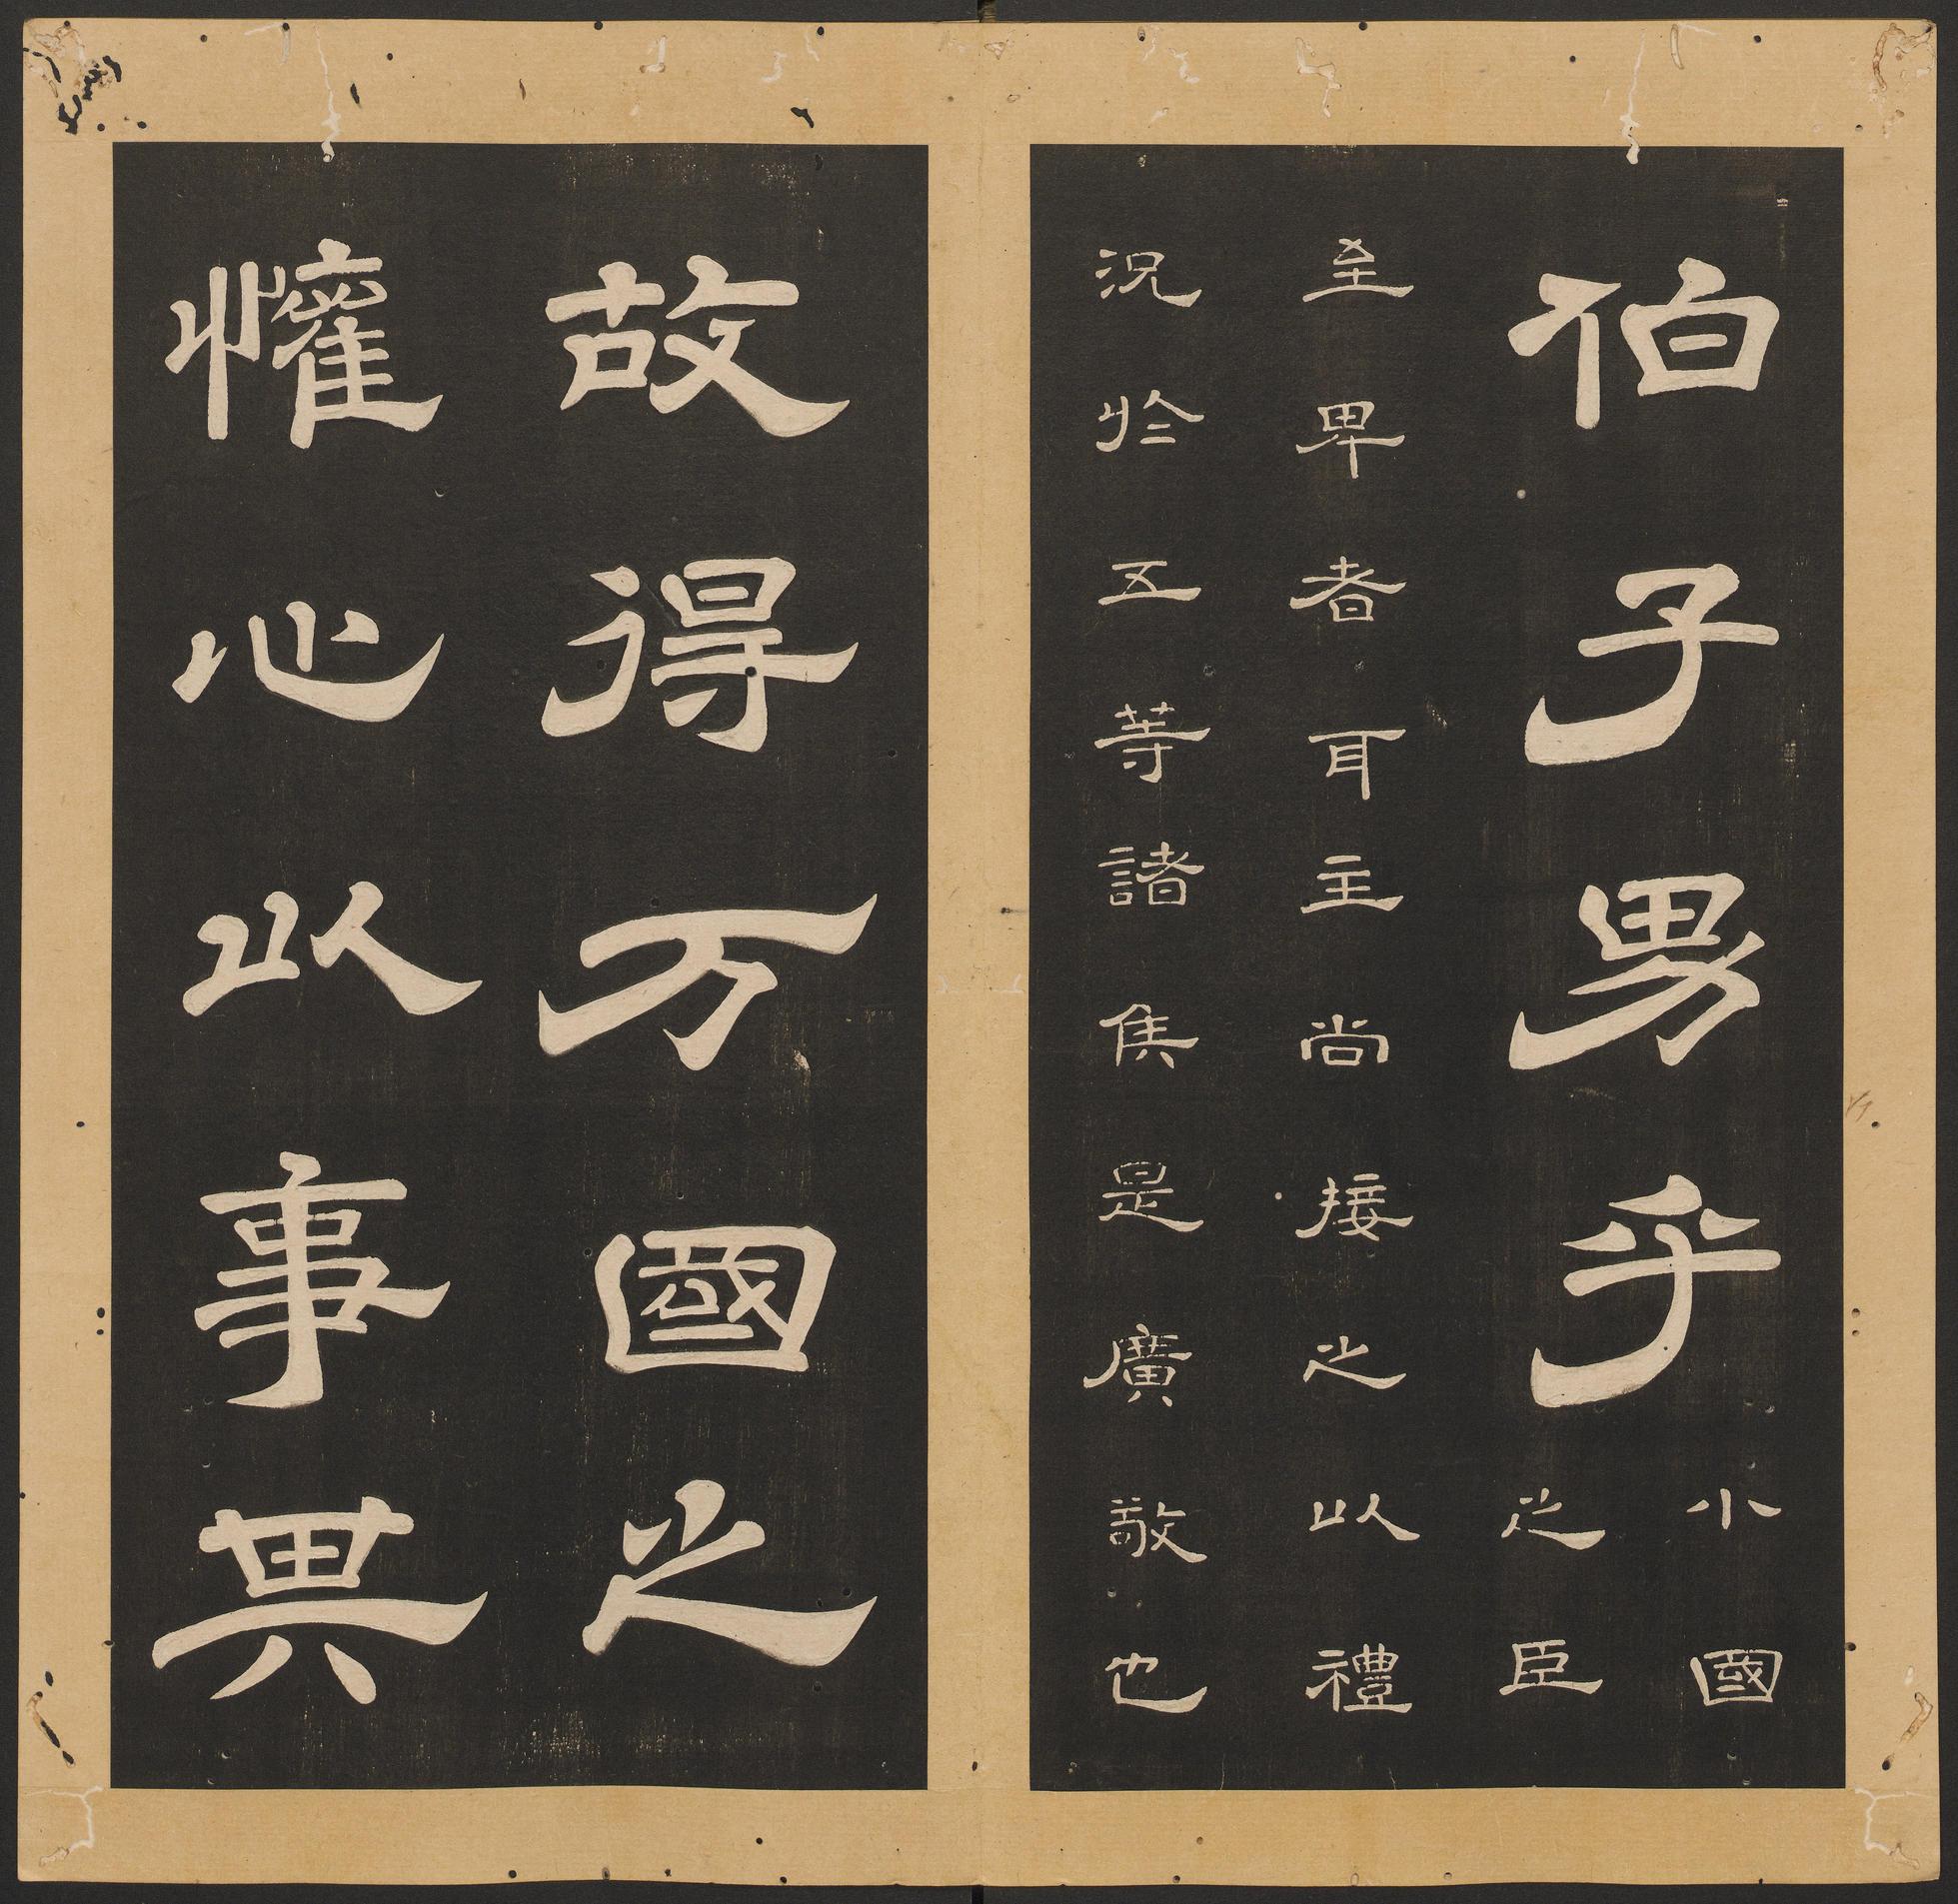 伯子男乎小國
之臣
至卑者耳主尚接之以禮
況於五等諸侯是廣敬也
故得万國之
懽心以事其